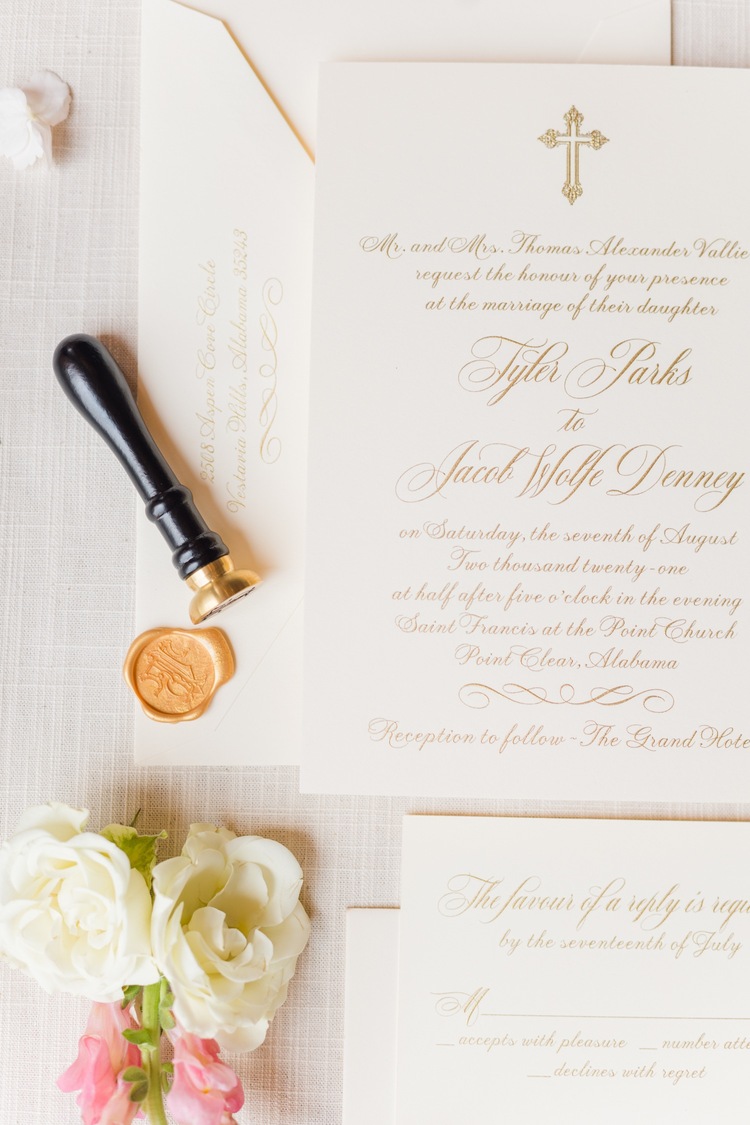 2508 Aspen Cove Circle
Vestavia Hills, Alabama 35243
Mr. and Mrs. Thomas Alexander Vallie
request the honour of your presence
at the marriage of their daughter
Tyler Parks
to
Jacob Wolfe Denney
on Saturday, the seventh of August
Two thousand twenty-one
at half after five o'clock in the evening
Saint Francis at the Point Church
Point Clear, Alabama
Reception to follow - The Grand Hote
The favour of a reply is requ
by the seventeenth of July
M
accepts with pleasure number atte
declines with regret